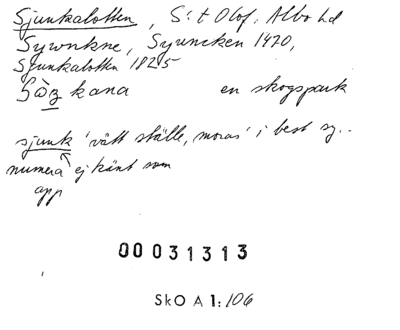 Sjunkalotten, S:t Olof. Albo hd
Sywnkne, Syuncken 1470,
Sjunkalotten 1825
kana en skogspark
sjunk 'vått ställe, moras' i best sg..
numera ej känt som
app
00031313
SkO A 1:106